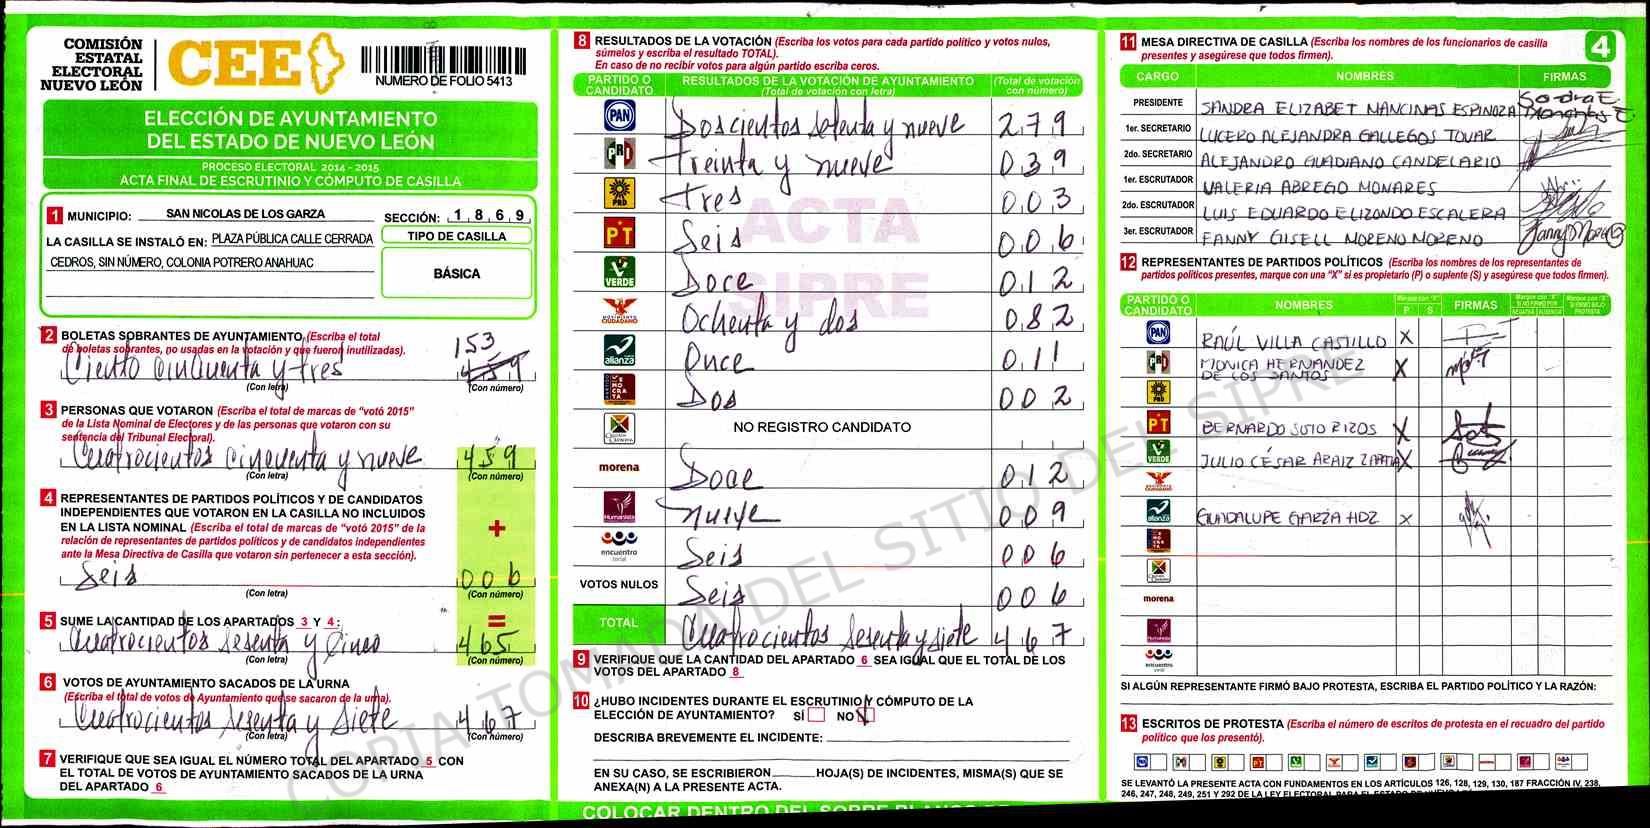 COMISIÓN
ESTATAL
ELECTORAL
NUEVO LEÓN
CEE
NUMERO DE FOLIO 5413
ELECCIÓN DE AYUNTAMIENTO
DEL ESTADO DE NUEVO LEÓN
PROCESO ELECTORAL 2014 - 2015
ACTA FINAL DE ESCRUTINIO Y CÓMPUTO DE CASILLA
1 MUNICIPIO: SAN NICOLAS DE LOS GARZA SECCIÓN: 1869
LA CASILLA SE INSTALÓ EN: PLAZA PÚBLICA CALLE CERRADA
CEDROS, SIN NÚMERO, COLONIA POTRERO ANAHUAC
TIPO DE CASILLA
BÁSICA
2 BOLETAS SOBRANTES DE AYUNTAMIENTO (Escriba el total
de boletas sobrantes, no usadas en la votación y que fueron inutilizadas).
153
Ciento cincuenta y tres 459
(Con letra) (Con número)
3 PERSONAS QUE VOTARON (Escriba el total de marcas de "votó 2015"
de la Lista Nominal de Electores y de las personas que votaron con su
sentencia del Tribunal Electoral).
Cuatrocientos cincuenta y nueve 459
(Con letra) (Con número)
4 REPRESENTANTES DE PARTIDOS POLÍTICOS Y DE CANDIDATOS
INDEPENDIENTES QUE VOTARON EN LA CASILLA NO INCLUIDOS
EN LA LISTA NOMINAL (Escriba el total de marcas de "votó 2015" de la
relación de representantes de partidos políticos y de candidatos independientes
ante la Mesa Directiva de Casilla que votaron sin pertenecer a esta sección).
+
Seis 006
(Con letra) (Con número)
5 SUME LA CANTIDAD DE LOS APARTADOS 3 Y 4: =
Cuatrocientos sesenta y cinco 465
(Con letra) (Con número)
6 VOTOS DE AYUNTAMIENTO SACADOS DE LA URNA
(Escriba el total de votos de Ayuntamiento que se sacaron de la urna).
Cuatrocientos sesenta y siete 467
(Con letra) (Con número)
7 VERIFIQUE QUE SEA IGUAL EL NÚMERO TOTAL DEL APARTADO 5 CON
EL TOTAL DE VOTOS DE AYUNTAMIENTO SACADOS DE LA URNA
DEL APARTADO 6
8 RESULTADOS DE LA VOTACIÓN (Escriba los votos para cada partido político y votos nulos,
súmelos y escriba el resultado TOTAL).
En caso de no recibir votos para algún partido escriba ceros.
PARTIDO O CANDIDATO RESULTADOS DE LA VOTACIÓN DE AYUNTAMIENTO (Total de votación con letra) (Total de votación con número)
PAN Doscientos setenta y nueve 279
PRI Treinta y nueve 039
PRD Tres 003
PT Seis 006
VERDE Doce 012
MOVIMIENTO CIUDADANO Ochenta y dos 082
alianza Once 011
DEMOCRATA Dos 002
NO REGISTRO CANDIDATO
morena Doce 012
Humanista nueve 009
encuentro social Seis 006
VOTOS NULOS Seis 006
TOTAL Cuatrocientos sesenta y siete 467
ACTA
SIPRE
9 VERIFIQUE QUE LA CANTIDAD DEL APARTADO 6 SEA IGUAL QUE EL TOTAL DE LOS
VOTOS DEL APARTADO 8
10 ¿HUBO INCIDENTES DURANTE EL ESCRUTINIO Y CÓMPUTO DE LA
ELECCIÓN DE AYUNTAMIENTO? SÍ NO X
DESCRIBA BREVEMENTE EL INCIDENTE:
EN SU CASO, SE ESCRIBIERON HOJA(S) DE INCIDENTES, MISMA(S) QUE SE
ANEXA(N) A LA PRESENTE ACTA.
COLOCAR DENTRO DEL SOBRE
11 MESA DIRECTIVA DE CASILLA (Escriba los nombres de los funcionarios de casilla
presentes y asegúrese que todos firmen).
4
CARGO NOMBRES FIRMAS
PRESIDENTE SANDRA ELIZABET MANCINAS ESPINOZA Sandra E.
1er. SECRETARIO LUCERO ALEJANDRA GALLEGOS TOVAR
2do. SECRETARIO ALEJANDRO GUADIANO CANDELARIO
1er. ESCRUTADOR VALERIA ABREGO MONARES
2do. ESCRUTADOR LUIS EDUARDO ELIZONDO ESCALERA
3er. ESCRUTADOR FANNY GISELL MORENO MORENO
12 REPRESENTANTES DE PARTIDOS POLÍTICOS (Escriba los nombres de los representantes de
partidos políticos presentes, marque con una "X" si es propietario (P) o suplente (S) y asegúrese que todos firmen).
PARTIDO O CANDIDATO NOMBRES Marque con "X" P S FIRMAS Marque con "X" SI NO FIRMÓ POR NEGATIVA AUSENCIA Marque con "X" SI FIRMÓ BAJO PROTESTA
PAN RAÚL VILLA CASTILLO X
PRI MONICA HERNANDEZ DE LOS SANTOS X
PRD
PT BERNARDO SOTO RIZOS X
VERDE JULIO CÉSAR ARAIZ ZAPATA X
alianza GUADALUPE GARZA HDZ X
morena
Humanista
encuentro social
SI ALGÚN REPRESENTANTE FIRMÓ BAJO PROTESTA, ESCRIBA EL PARTIDO POLÍTICO Y LA RAZÓN:
13 ESCRITOS DE PROTESTA (Escriba el número de escritos de protesta en el recuadro del partido
político que los presentó).
SE LEVANTÓ LA PRESENTE ACTA CON FUNDAMENTOS EN LOS ARTÍCULOS 126, 128, 129, 130, 187 FRACCIÓN IV, 238,
246, 247, 248, 249, 251 Y 292 DE LA LEY ELECTORAL PARA EL ESTADO DE
COPIA TOMADA DEL SITIO DEL SIPRE